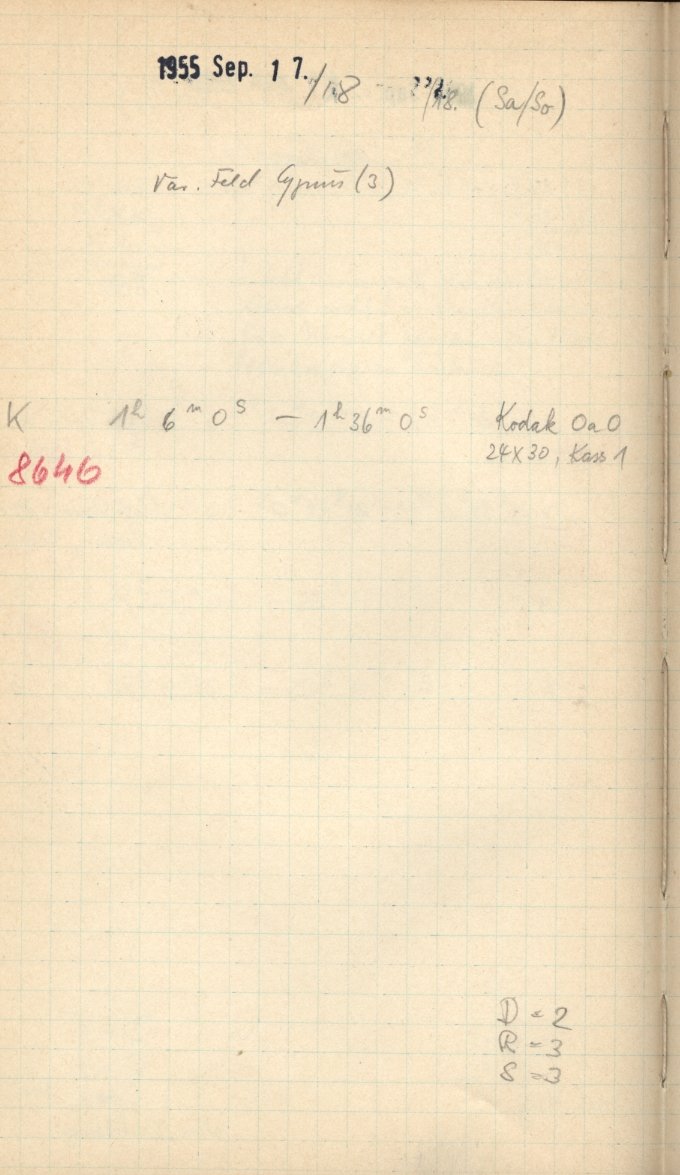 1955 Sep. 17./18 /18. (Sa/So)
Var. Feld Cygnus (3)
K 1h 6m 0s — 1h 36m 0s Kodak OaO
24x30, Kass 1
8646
D = 2
R = 3
S = 3